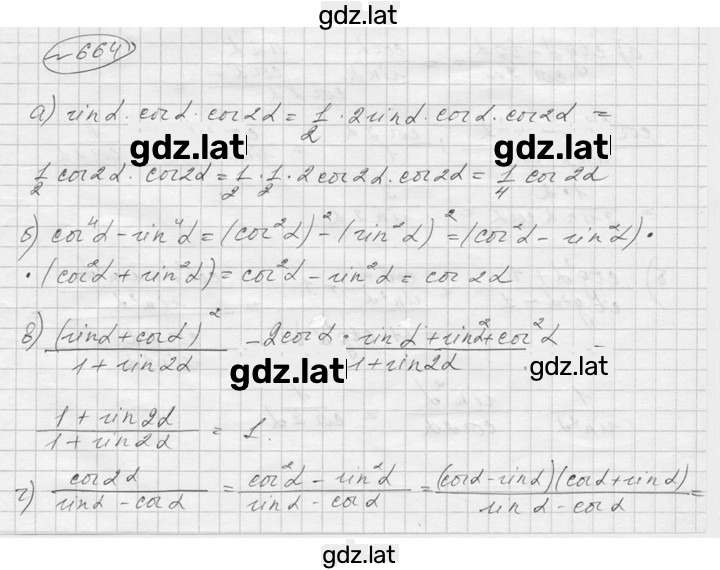 gdz.lat
~664
а) sinα · cosα · cos2α = 1/2 · 2sinα · cosα · cos2α =
gdz.lat gdz.lat
1/2 cos2α · cos2α = 1/2 · 1/2 · 2cos2α · cos2α = 1/4 cos2α
б) cos⁴α - sin⁴α = (cos²α)² - (sin²α)² = (cos²α - sin²α) ·
· (cos²α + sin²α) = cos²α - sin²α = cos2α
в) (sinα + cosα)² / 1 + sin2α - 2cosα · sinα + sin² + cos²α / 1 + sin2α =
gdz.lat gdz.lat
1 + sin2α / 1 + sin2α = 1.
г) cos2α / sinα - cosα = cos²α - sin²α / sinα - cosα = (cosα - sinα)(cosα + sinα) / sinα - cosα =
gdz.lat